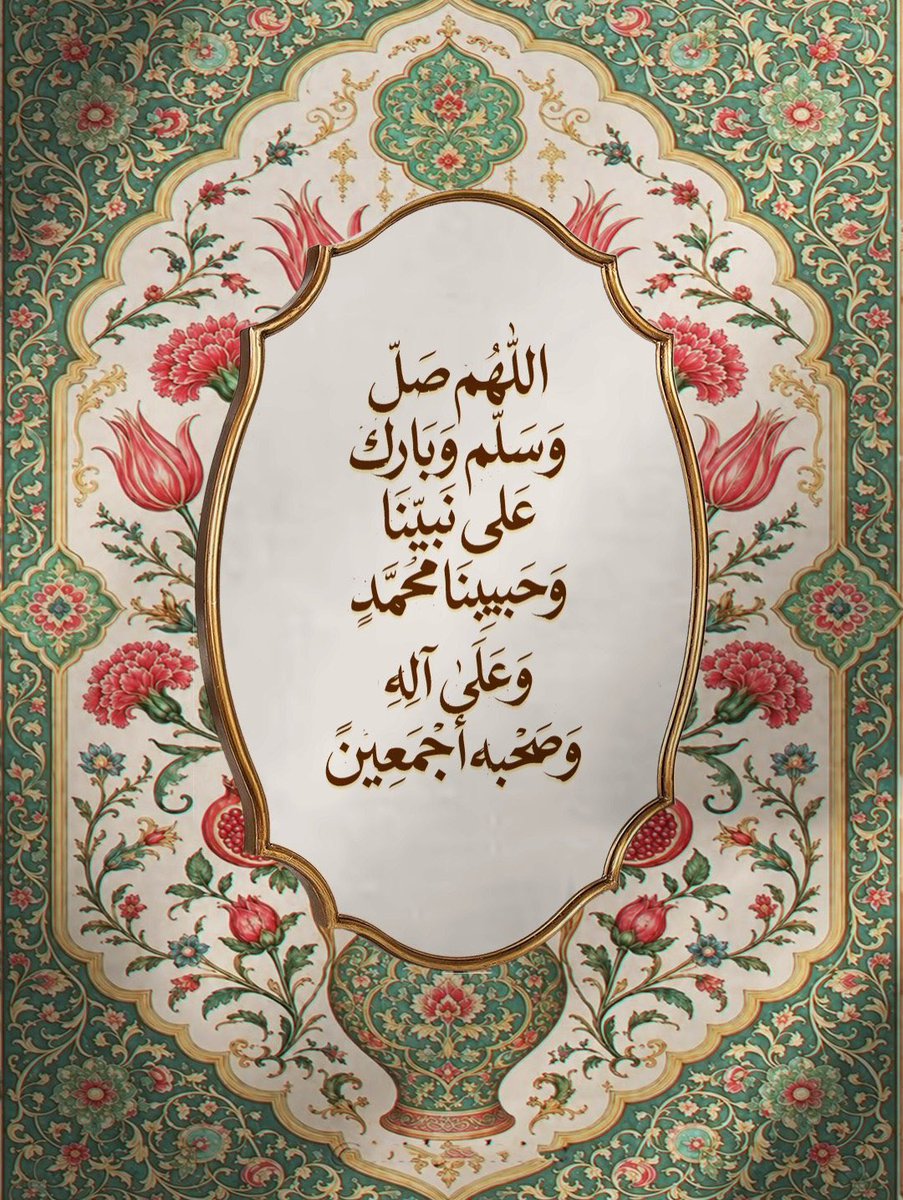 اللّٰهُم صَلّ
وَسَلّم وَبَارك
عَلى نَبيّنَا
وَحَبيِبنَا محْمَّدٍ
وَعَلَىٰ آلِهِ
وَصَحْبه أجْمَعِينً